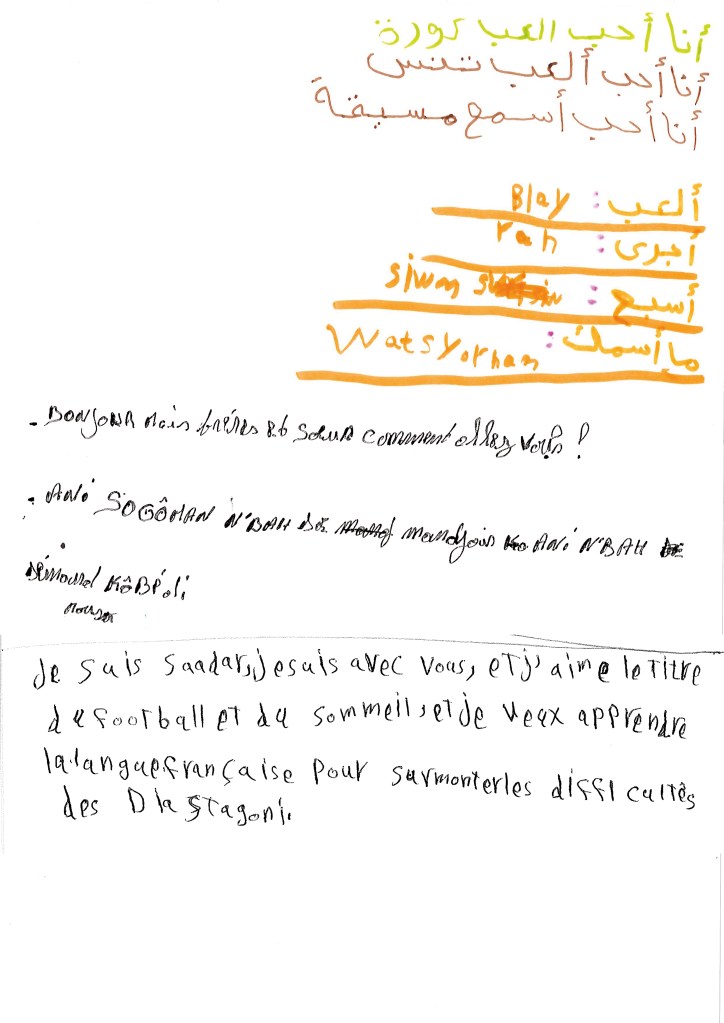 أنا أحب العب كورة
أنا أحب ألعب تنس
أنا أحب أسمع مسيقة
ألعب : Blay
أجرى : ran
أسبح : siwm
ما أسمك : Watsyornam
- Bonjour mais frères et soeur comment allez vous !
- ANi SOGÔMAN N'BAH mandjoin ANi N'BAH
KÔBÉOli
Je suis saadar, je suis avec vous, et j'aime le titre
du football et du sommeil, et je veux apprendre
la langue française pour surmonter les difficultés
des